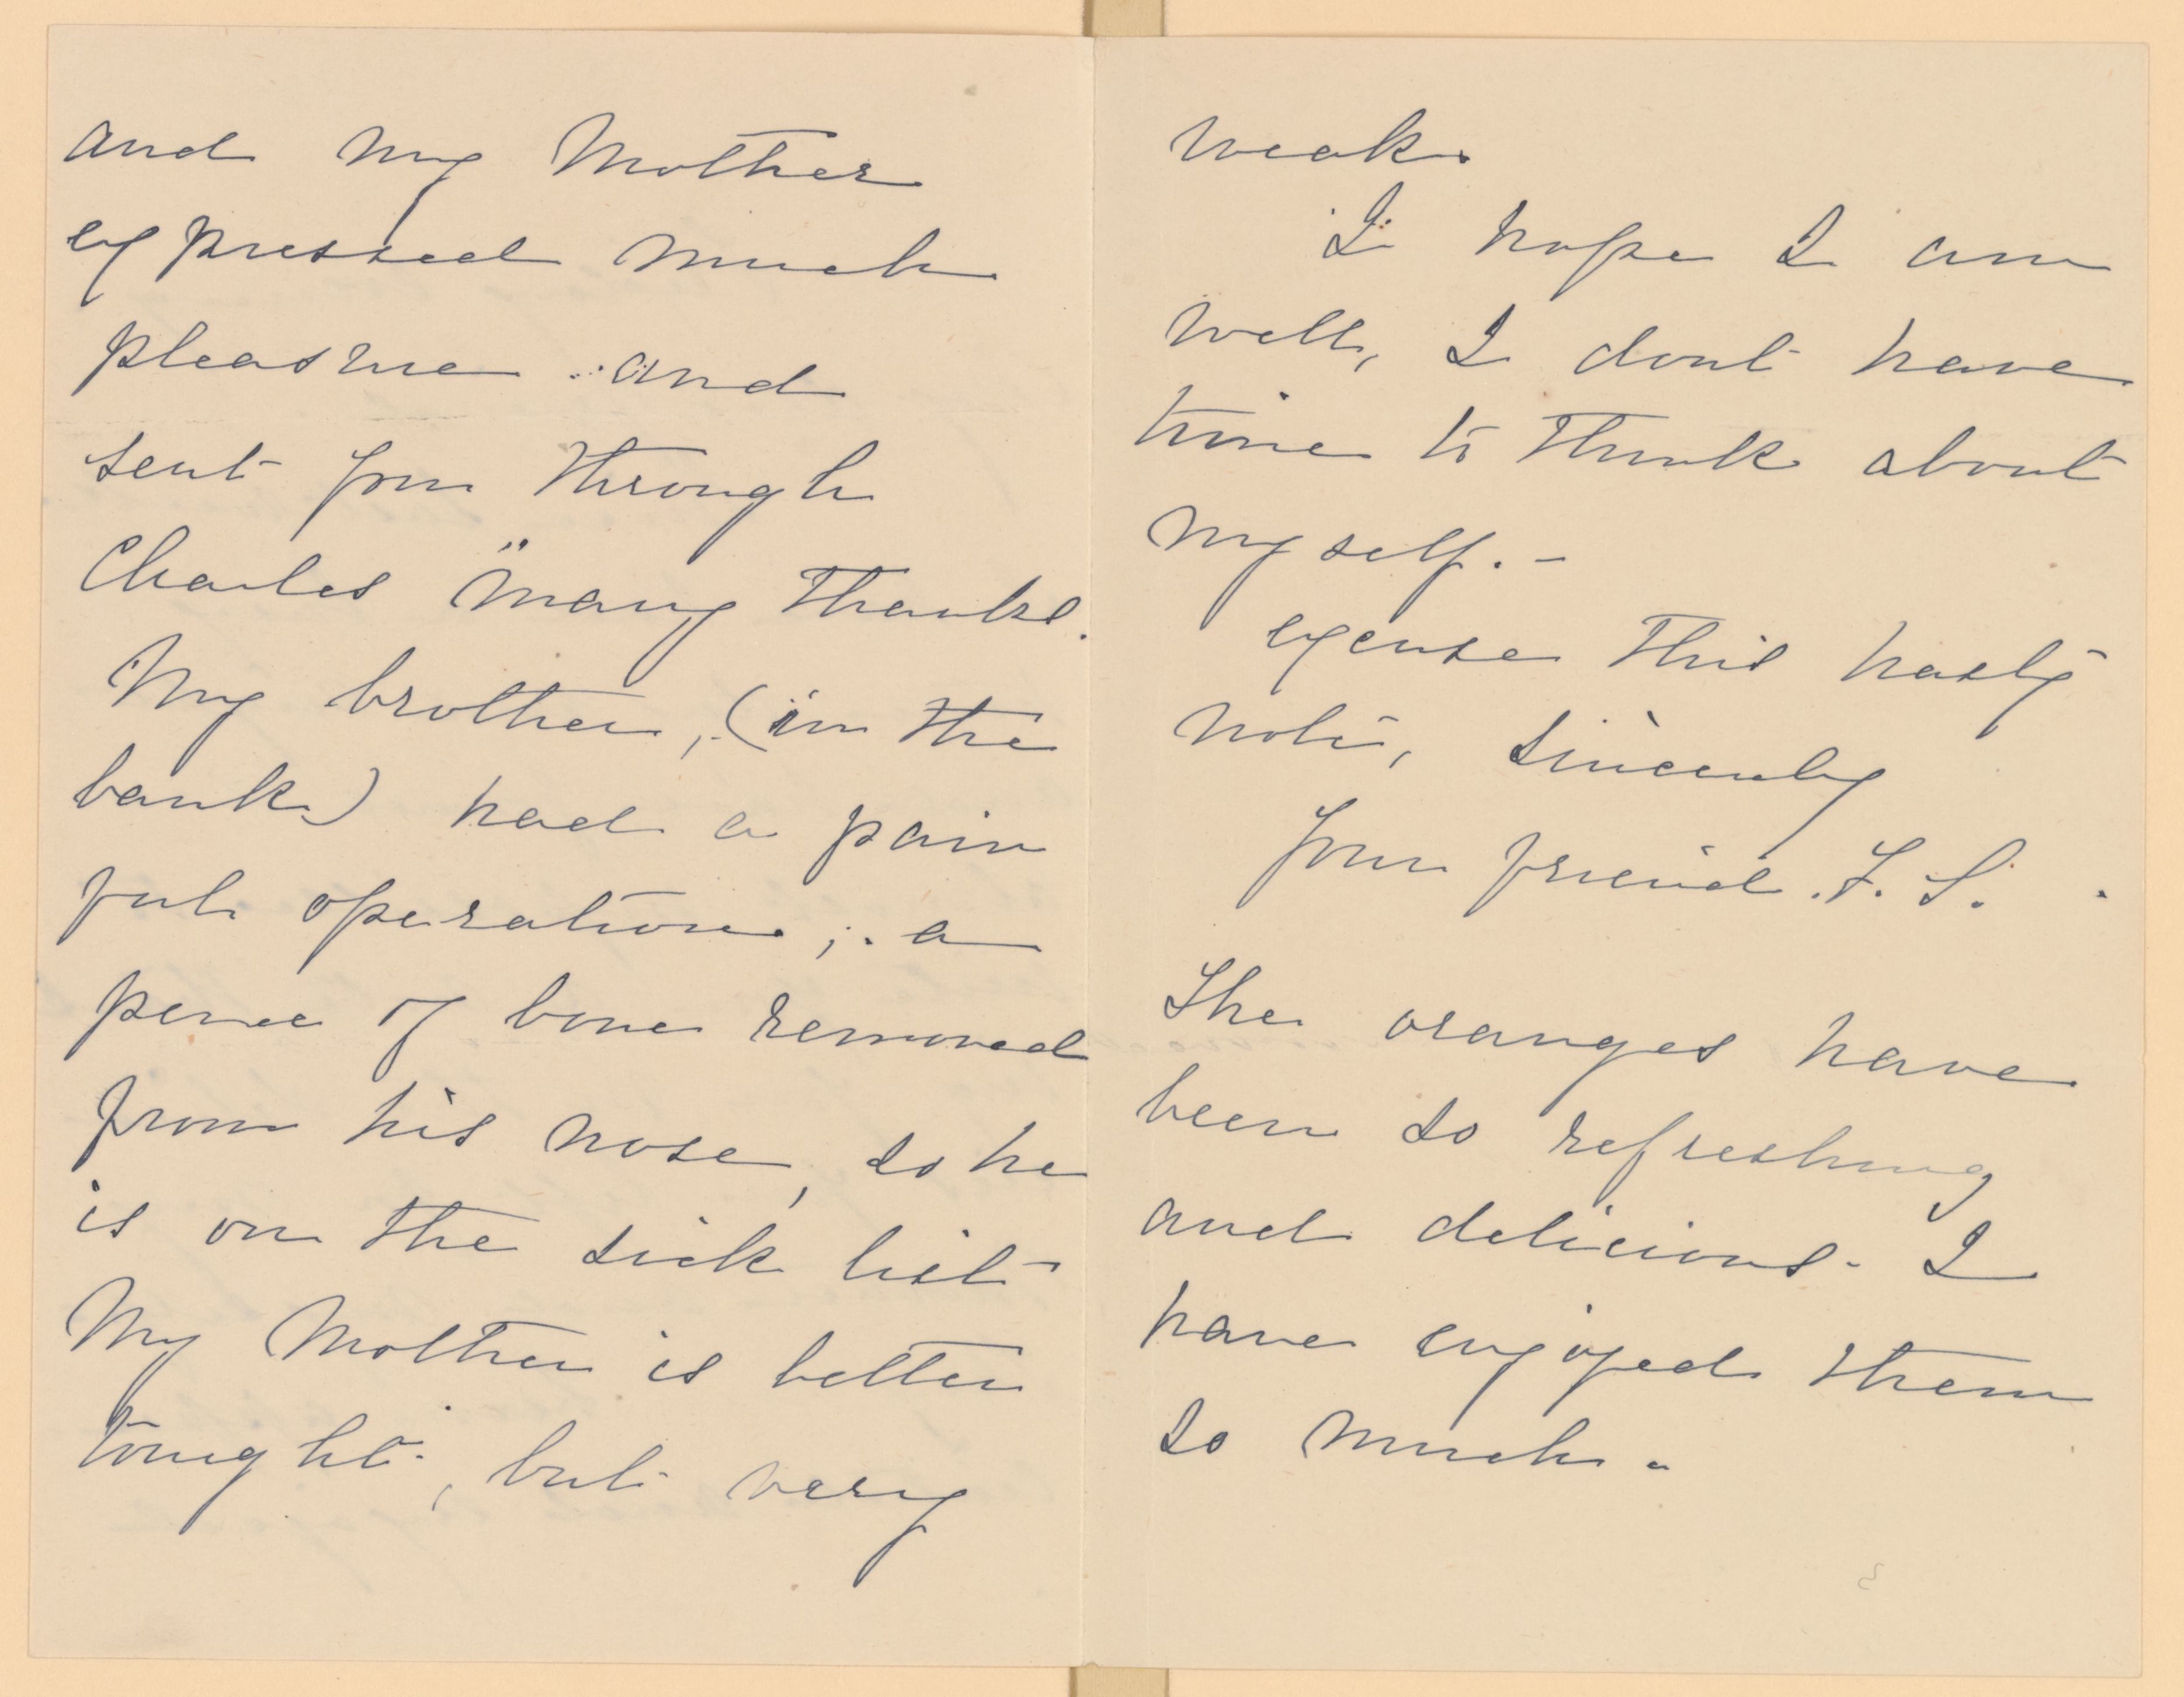 and my Mother
expressed much
pleasure and
sent you through
Charles "many thanks.
My brother, (in the
bank) had a pain
ful operation; a
peice of bone removed
from his nose, so he
is on the sick list-
My Mother is better
tonight, but very
weak.
I hope I am
well, I dont have
time to think about
myself. -
excuse this hasty
note, sincerely
your friend. F. S.
The oranges have
been so refreshing
and delicious- I
have enjoyed them
so much -